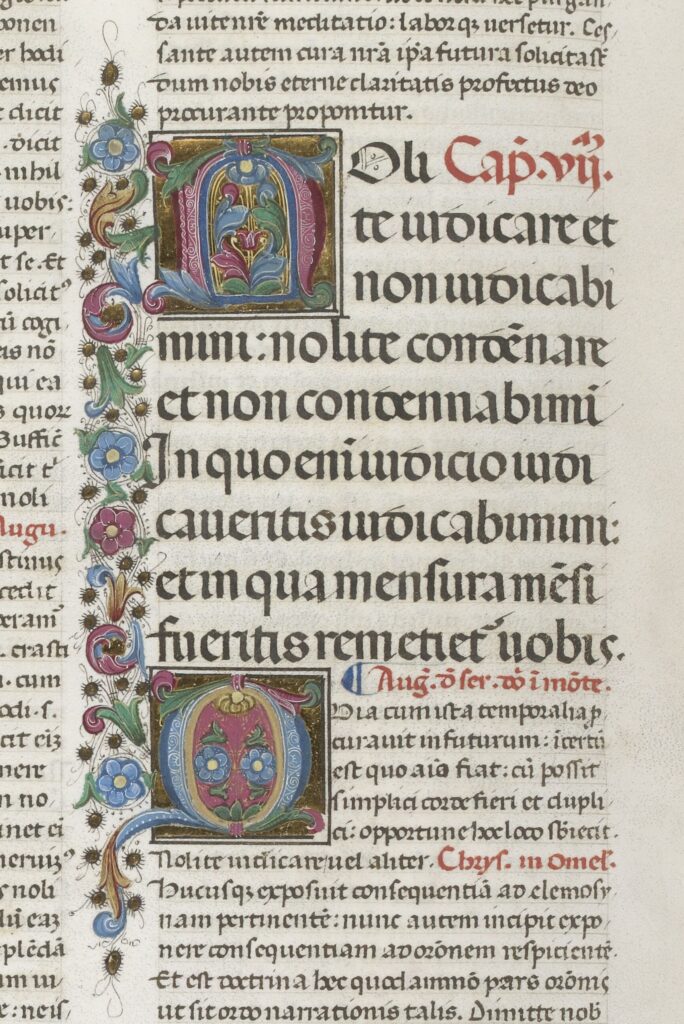 ponen
er hodi
emus
t dicit
. dicit
nihil
uobis:
uper
t se. Et
solicitꝰ
cogi
eis nō
qui ea
s quore
Suffic̄
icit t'
noli
Augu.
stinus
cedit
peram̄
. crasti
. cum
odi .s.
nere
n no
inet ei
s noli
plēdā
um ui
e: neis
da uitenr̄e meditatio: labor qꝫ versetur. Ces
sante autem cura nr̄a ip̄a futura solicitast̄
dum nobis eterne claritatis profectus deo
procurante proponitur.
NOli Cap̄. vij.
te iudicare et
non iudicabi
mini: nolite condēnare
et non condennabimī
In quo enī iudicio iudi
caueritis iudicabimini:
et in qua mensura mēsi
fueritis remetietᷣ uobis.
Aug̃. d̄ ser. dō ī mōte.
QUia cum ista temporalia ꝓ
curauit in futurum: īcertū
est quo aīo fiat: cū possit
simplici corde fieri et dupli
ci: opportune hoc loco sb̄iecit.
Nolite iudicare uel aliter. Chrys. in Omel.
Hucusqꝫ exposuit consequentiā ad elemosy
nam pertinentē: nunc autem incipit expo
nere consequentiam ad or̄onem respicientē.
Et est doctrina hec quodammō pars or̄onis
ut sit ordo narrationis talis. Dimitte nob̄